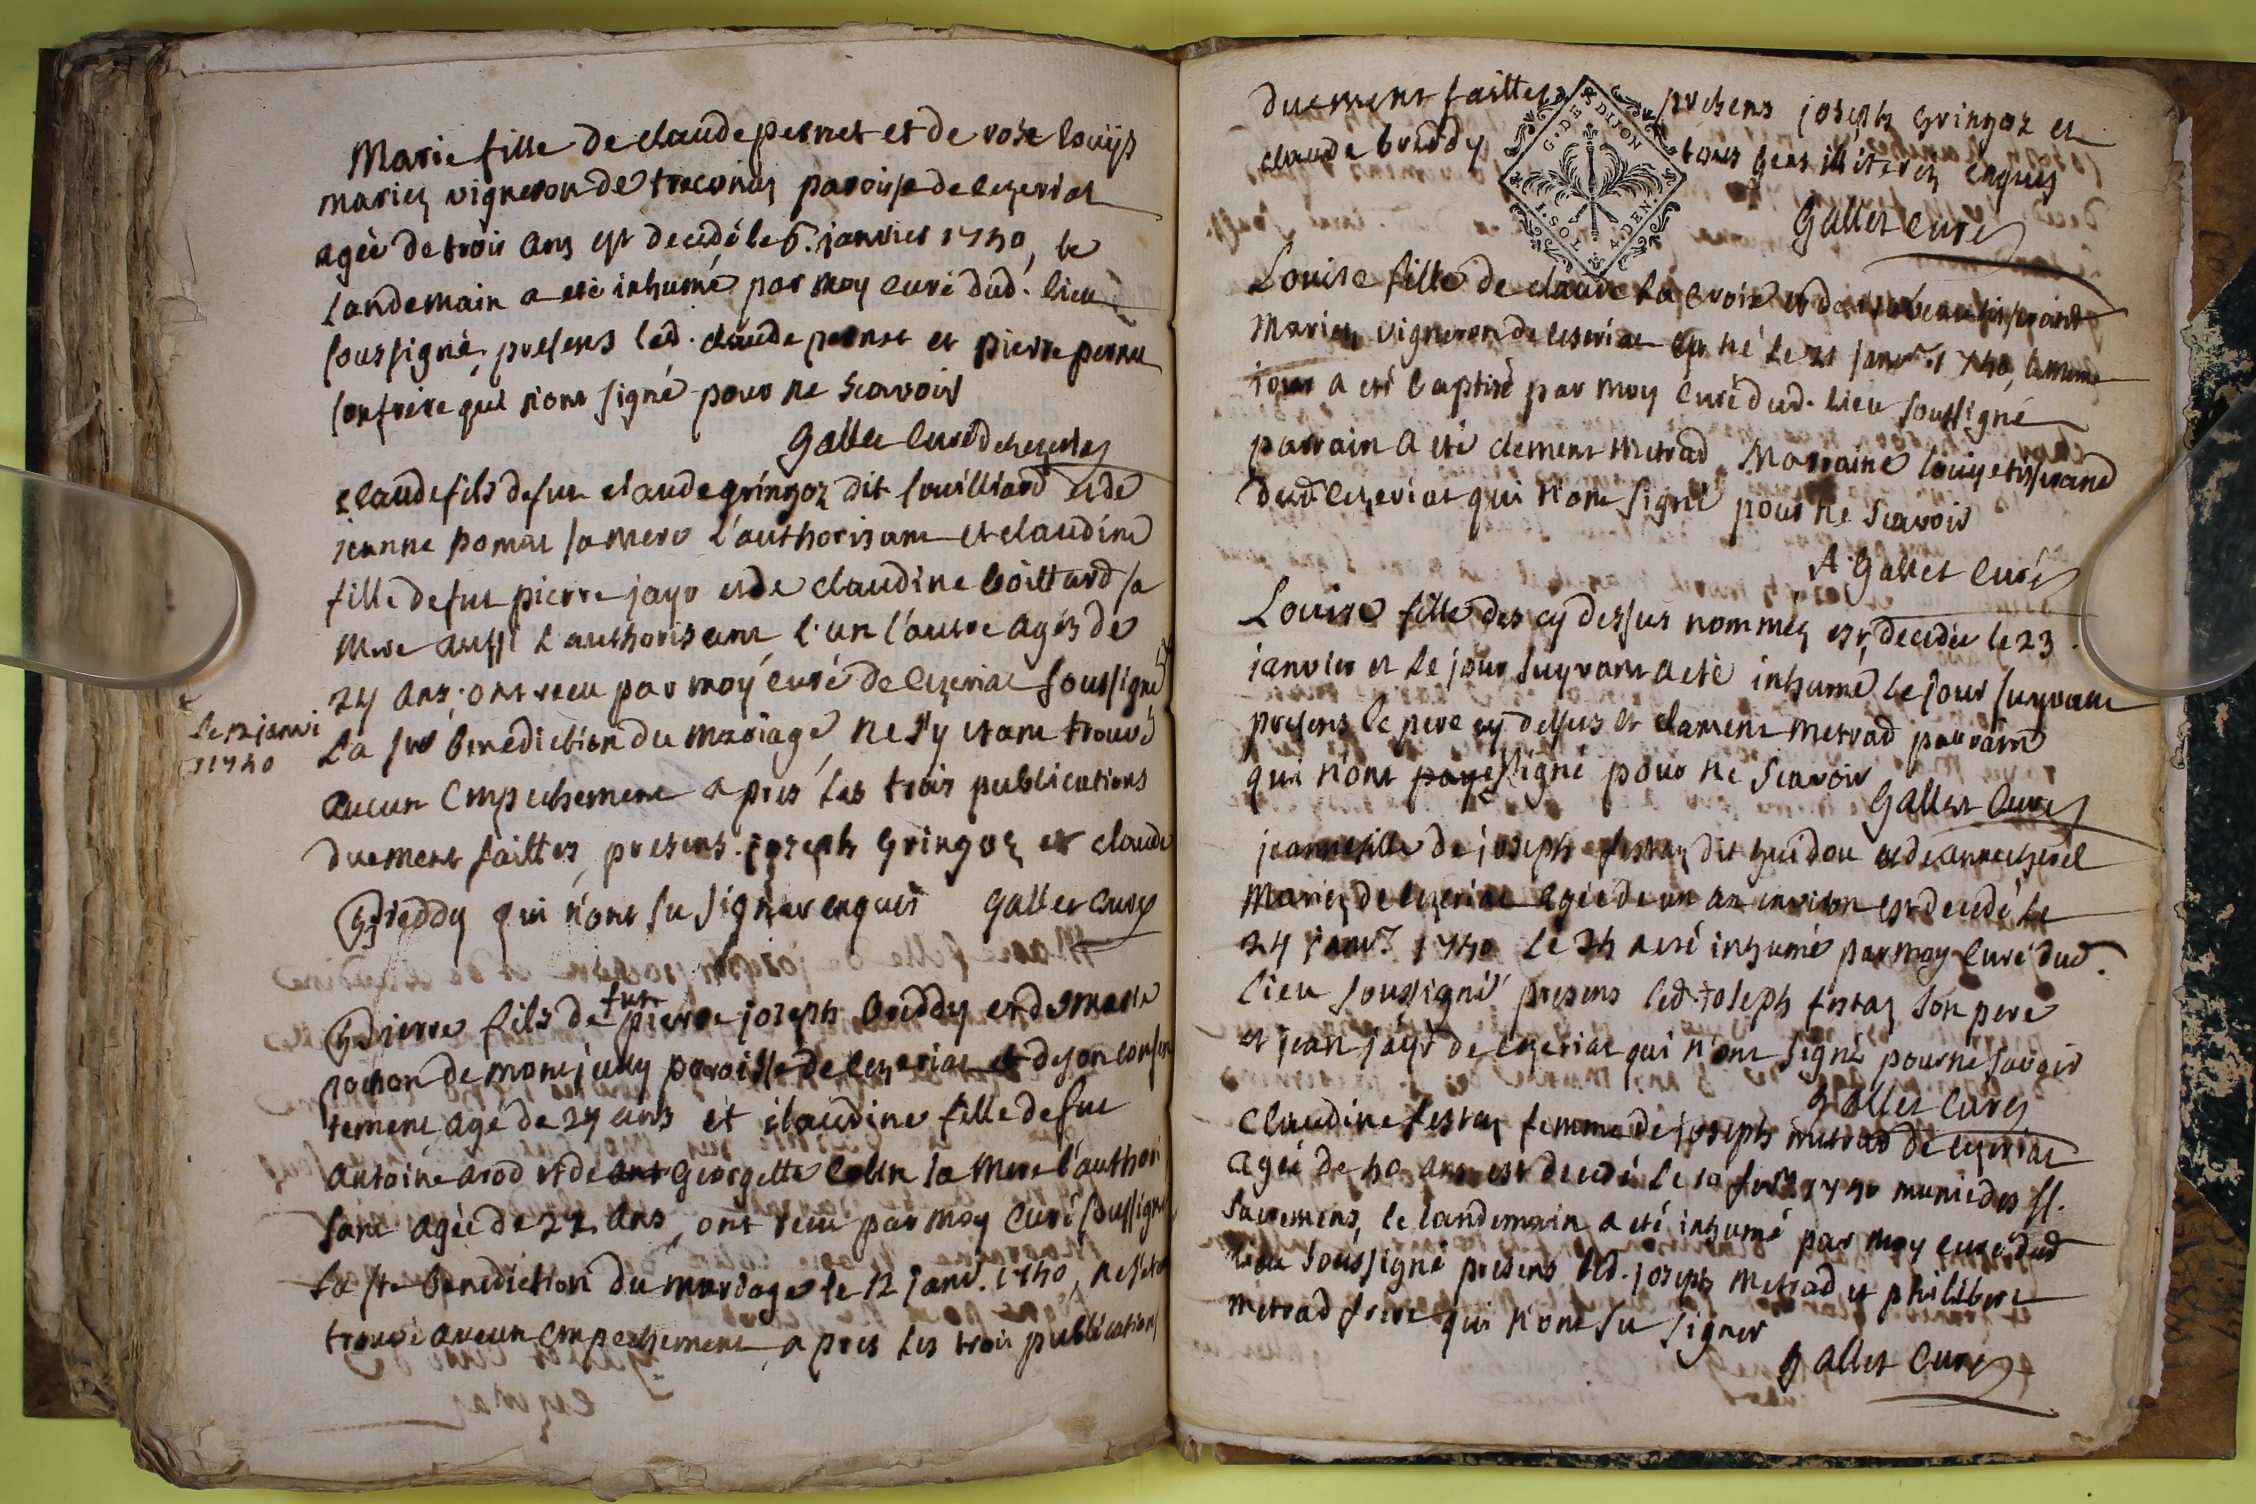 Marie fille de claude pernet et de rose louys
mariez vigneron de treconas paroisse de cezeriat
agée de trois ans est decedé le 6. janvier 1740, le
landemain a eté inhumé par moy curé dud. lieu
soussigné, presens led. claude pernet et pierre pernet
son frere qui n'ont signé pour ne scavoir
Gallet curé de cezeriat
claude fils de fut claude gringoz dit souilliard et de
jeanne pomat sa mere l'authorisant et claudine
fille de fut pierre jayr et de claudine boillard sa
mere aussi l'authorisant, l'un l'autre agés de
24 ans, ont recu par moy curé de cezeriat soussigné
Le 12 janvi
1740
La ste benediction du mariage, ne s'y etant trouvé
aucun Empechement apres les trois publications
duement faittes, presens joseph Gringoz et claude
breddy qui n'ont su signer enquis Gallet curé
pierre fils de fut pierre joseph breddy et de marie
rochon de montjuly paroisse de cezeriat et de son consen
tement agé de 24 ans et claudine fille de fut
Antoine arod et de Georgette Colin sa mere l'authori
sant agée de 22 ans, ont recu par moy Curé soussigné
La ste benediction du mariage le 12 janv. 1740, ne s'etant
trouvé aucun Empechement apres les trois publications
duement faittes presens joseph Gringoz et
claude breddy tous gens illiterez enquis
G. DE DIJON
I. SOL 4. DEN.
Gallet curé
Louise fille de claude La croix et de tisserand
Mariez vigneron de ceseriat est né le 21 janvr 1740, le meme
jour a eté baptisé par moy curé dud. lieu soussigné
parrain a eté clement metrad Marraine louise tisserand
dud cezeriat qui n'ont signé pour ne scavoir
A. Gallet curé
Louise fille des cy dessus nommez est decedée le 23
janvier et le jour suyvant a eté inhumé le jour suyvant
presens le pere cy dessus et clement metrad parrain
qui n'ont signé pour ne scavoir Gallet curé
jeanne fille de joseph festaz dit guidou et de anne
Mariez de cezeriat agée de un an environ est decedé le
24 janvr 1740 le 25 a eté inhumé par moy curé dud.
lieu soussigné presens led. joseph festaz son pere
et jean jayr de cezeriat qui n'ont signé pour ne savoir
Gallet curé
Claudine festaz femme de joseph metrad de cezeriat
agée de 40 ans est decedé le 10 fevr 1740 munie des SS.
sacremens, le landemain a eté inhumé par moy curé dud
lieu soussigné presens led. joseph metrad et philibert
metrad frere qui n'ont su signer
Gallet Curé